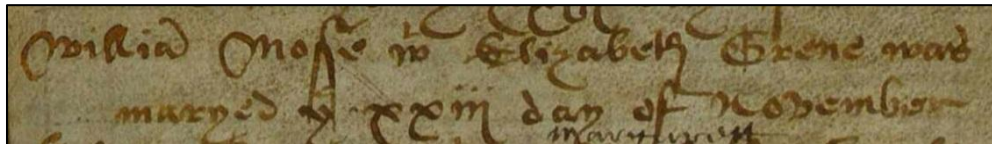 Williā Mosse wt Elizabeth Grene was
maryed ye xxiij day of November